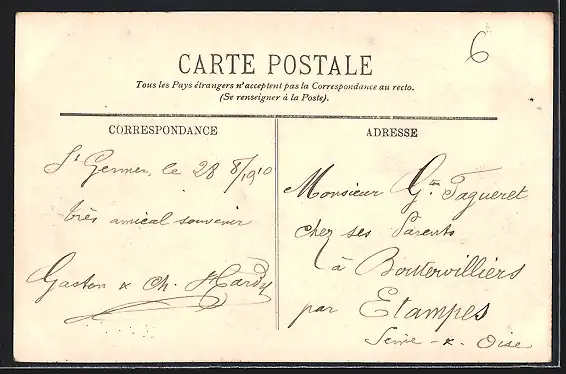 6
CARTE POSTALE
Tous les Pays étrangers n'acceptent pas la Correspondance au recto.
(Se renseigner à la Poste).
CORRESPONDANCE
ADRESSE
St Germer, le 28 8/1910
très amical souvenir
Gaston & Ch. Hardy
Monsieur Gton Fagueret
chez ses Parents
à Boutervilliers
par Etampes
Seine-&-Oise